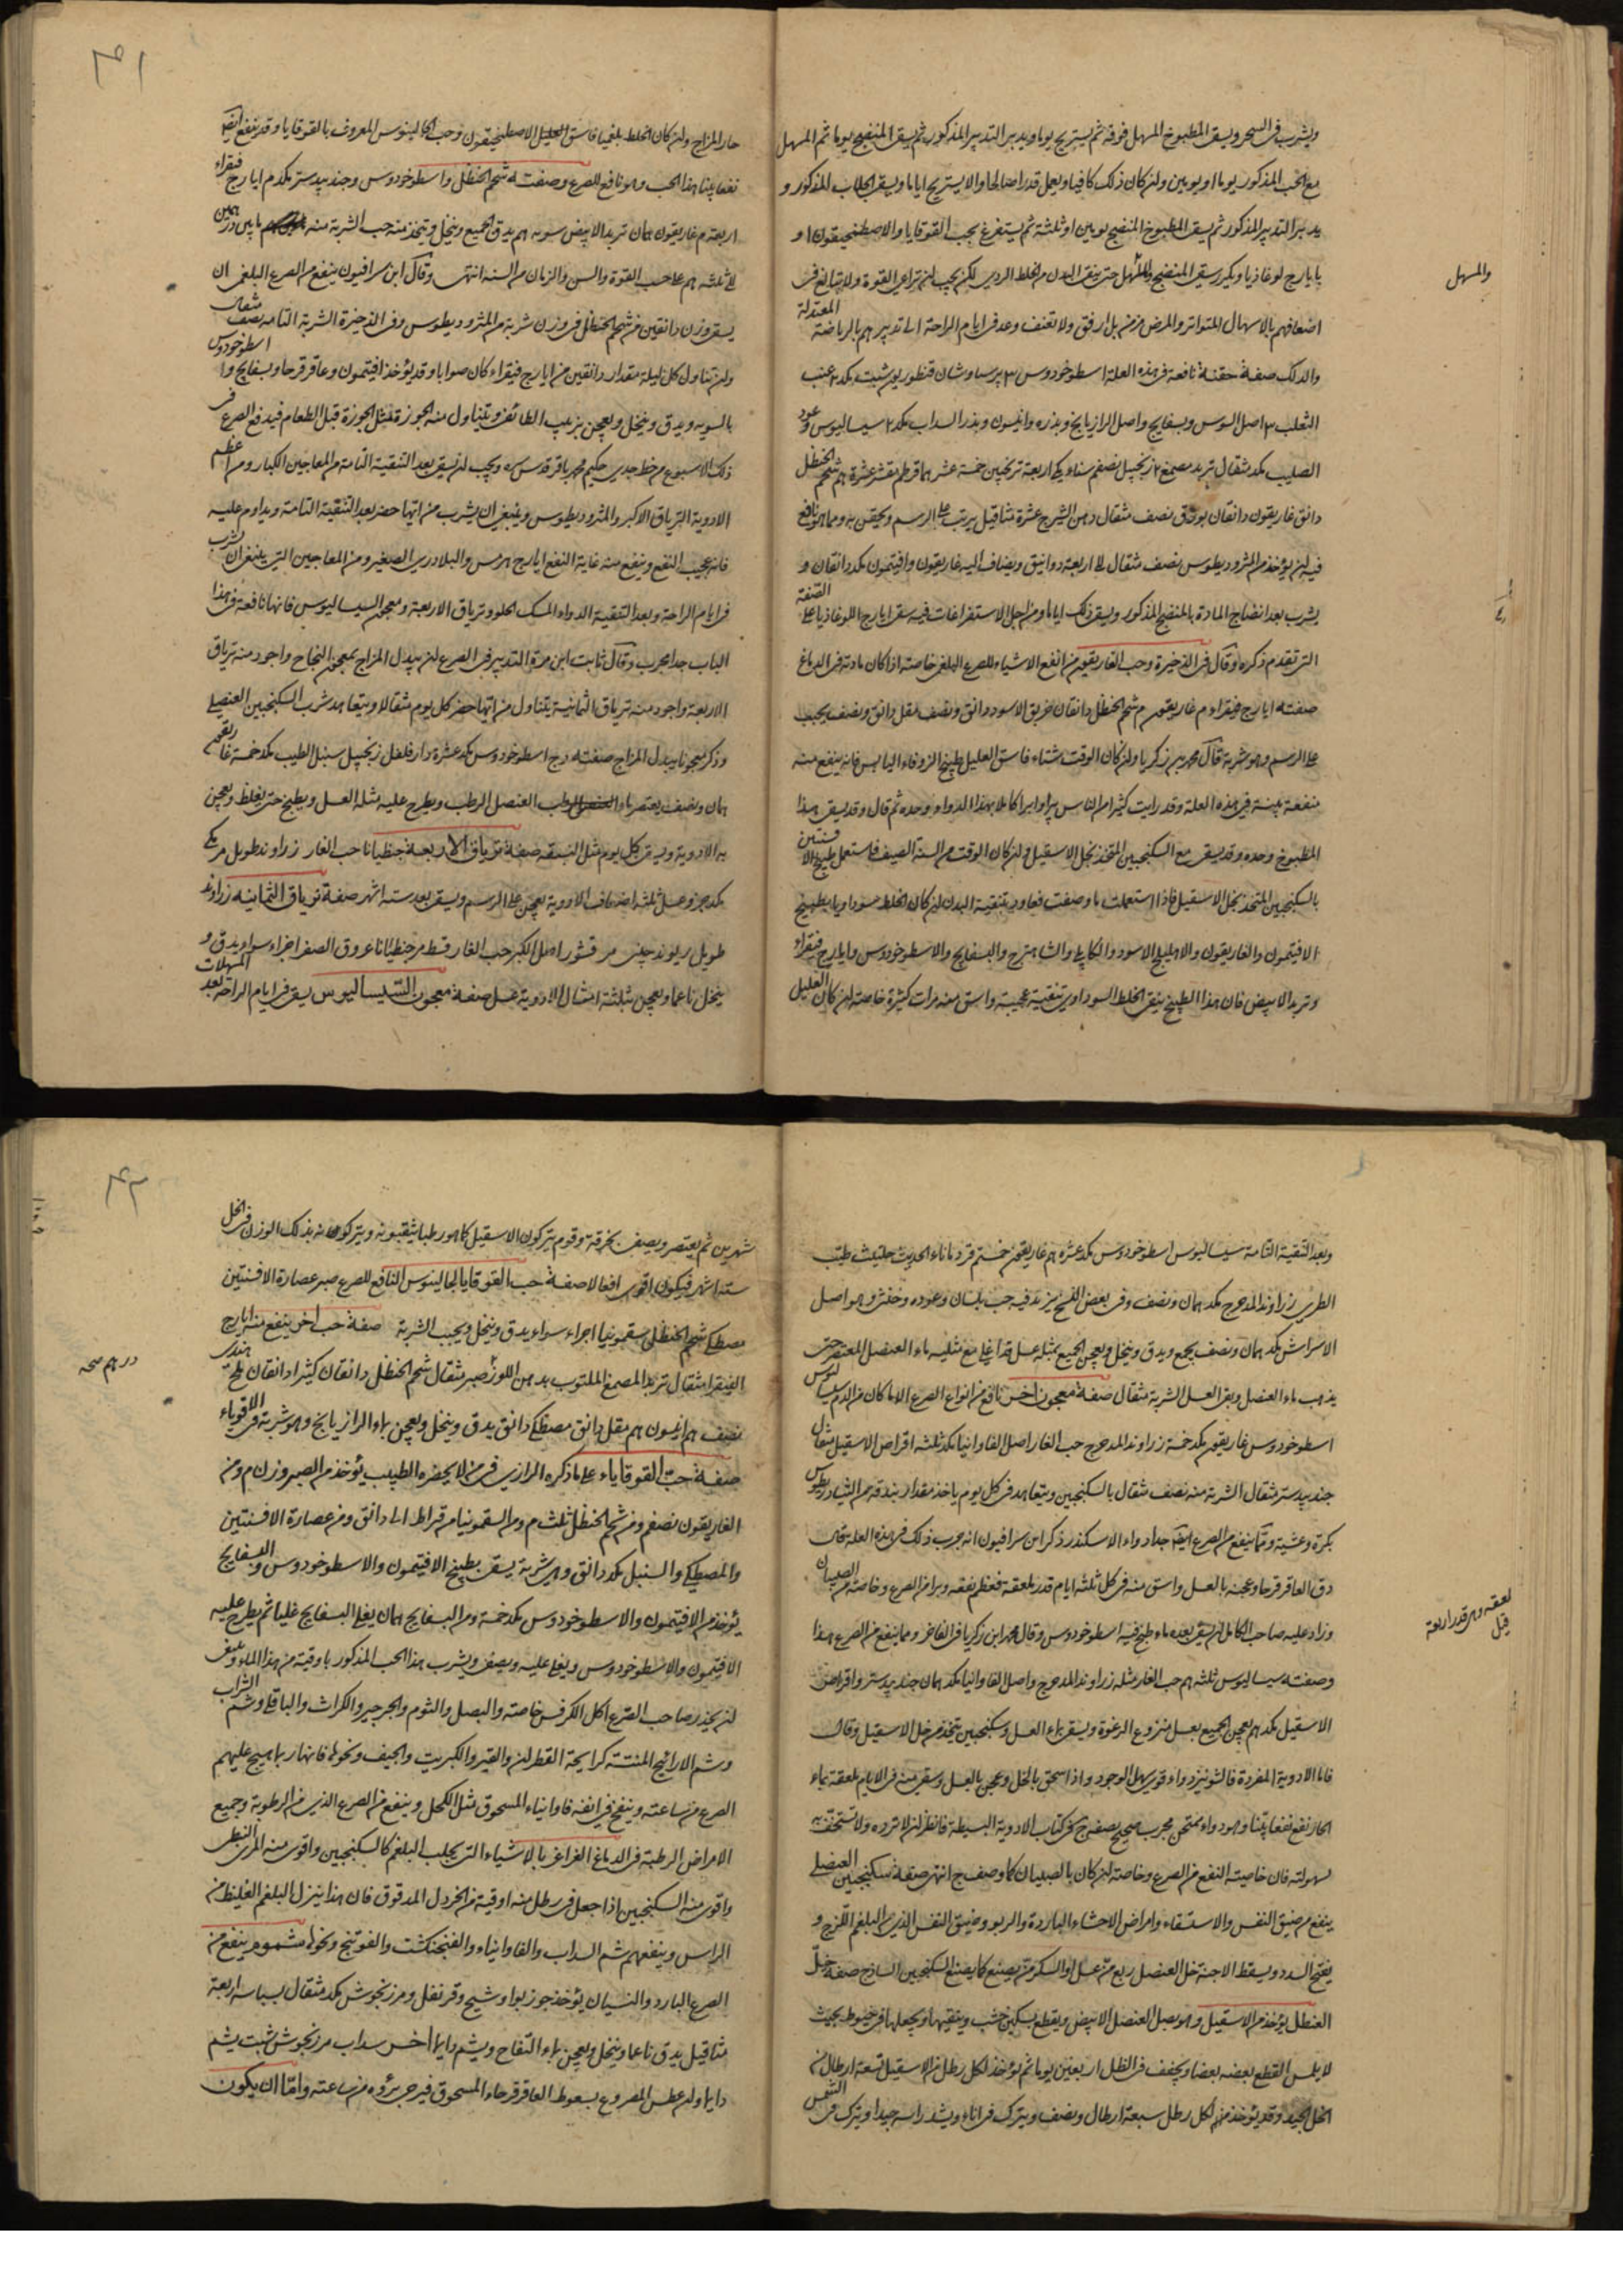 ويشرب في السحر ويسقى المطبوخ المسهل فوقه ثم يستريح يوما ويدبر التدبير المذكور ثم يسقى المنضج يوما ثم المسهل
مع الحب المذكور يوما او يومين ولن كان ذلك كافيا ويعمل قدرا صالحا والا يستريح اياما ويسقى الجلاب المذكور و
يدبر التدبير المذكور ثم يسقى المطبوخ المنضج يومين او ثلثة ثم يستفرغ بحب القوقايا والاصطمخيقون او
يا يارج لوغاذيا ويكرر سقي المنضج والمسهل حتى ينقى البدن من الخلط الردي لكن يجب لن تراعى القوة ولا تبالغ في
والمسهل
اضعافهم بالاسهال المتواتر والمرض مزمن بل ارفق ولا تعنف وعد في ايام الراحة الى تدبيرهم بالرياضة المعتدلة
والدلك صفة حقنة نافعة في هذه العلة اسطوخودوس ٣ برسياوشان قنطوريون شبت مكد ٢ عنب
الثعلب ٣ اصل السوس وبسفايج واصل الرازيانج وبذره وانيسون وبذر السداب مكد ٢ سيساليوس وعود
الصليب مكد مثقال تربد مصمغ ٢ زنجبيل نصفم سناء مكي اربعة ترنجبين خمسة عشر هما قرطم مقشر عشرة هم شحم الحنظل
دانق غاريقون دانقان بورق نصف مثقال دهن الشيرج عشرة مثاقيل يرتب على الرسم ويحقن به ومما هو نافع
فيه لن يؤخذ من المثروديطوس نصف مثقال الى اربعة دوانيق ويضاف اليه غاريقون وافتيمون مكد دانقان و
يشرب بعد انضاج المادة بالمنضج المذكور ويسقى ذلك اياما ومن اجل الاستفراغات فيه سقي ايارج اللوغاذيا على الصفة
التي تقدم ذكره وقال في الذخيرة وحب الغاريقون من انفع الاشياء للصرع البلغمي خاصة اذا كان مادته في الدماغ
صفته ايارج فيقرا م غاريقون م شحم الحنظل دانقان خربق الاسود دانق ونصف مقل دانق ونصف يحبب
على الرسم وهو شربة قال محمد بن زكريا ولن كان الوقت شتاء فاسق العليل طبيخ الزوفاء اليابس فانه ينفع منه
منفعة بينة في هذه العلة وقد رايت كثيرا من الناس برا وابرا كاملا بهذا الدواء وحده ثم قال وقد يسقى هذا
المطبوخ وحده وقد يسقى مع السكنجبين المتخذ بخل الاسقيل ولن كان الوقت من السنة الصيف فاستعمل طبيخ الافسنتين
بالسكنجبين المتخذ بخل الاسقيل فاذا استعملت ما وصفت فعاود بتنقية البدن لن كان الخلط سوداويا بطبيخ
الافتيمون والغاريقون والاهليلج الاسود والكابلي والشاهترج والبسفايج والاسطوخودوس وايارج فيقراء
وتربد الابيض فان هذا الطبيخ ينقى الخلط السوداوي تنقية عجيبة واسق منه مرات كثيرة خاصة لن كان العليل
٤١
حار المزاج ولن كان الخلط بلغميا فاسق العليل الاصطمخيقون وحب الجالينوس المعروف بالقوقايا وقد ينفع ايضا
نفعا بينا هذا الحب وهو نافع للصرع وصفته شحم الحنظل واسطوخودوس وجندبيدستر مكدم ايارج فيقراء
اربعة م غاريقون همان تربد الابيض سوبه هم يدق الجميع وينخل ويتخذ منه حب الشربة منه ما بين درهمين
الى ثلثة هم على حسب القوة والسن والزمان من السنة انتهى وقال ابن سرافيون ينفع من الصرع البلغمي ان
يسقى وزن دانقين من شحم الحنظل في وزن شربة من المثروديطوس وفي الذخيرة الشربة التامة نصف مثقال
ولن تناول كل ليلة مقدار دانقين من ايارج فيقراء كان صوابا وقد يؤخذ افتيمون وعاقرقرحا وبسفايج واسطوخودوس
بالسوية ويدق وينخل ويعجن بزبيب الطائفي ويتناول منه الجوز مثل الجوزة قبل الطعام فيدفع الصرع في
ذلك الاسبوع من خط جدي حكيم محمد باقر قدس سره ويجب لن يسقى بعد التنقية التامة من المعاجين الكبار ومن اعظم
الادوية الترياق الاكبر والمثروديطوس وينبغي ان يشرب من ايها حضر بعد التنقية التامة ويداوم عليه
فانه عجيب النفع وينفع منه غاية النفع ايارج هرمس والبلادري الصغير ومن المعاجين التي ينبغي ان يشرب
في ايام الراحة وبعد التنقية الدواء المسك الحلو وترياق الاربعة ومعجون السيساليوس فانها نافعة في هذا
الباب جدا مجرب وقال ثابت ابن قرة التدبير في الصرع لن يبدل المزاج بمعجون النجاح واجود منه ترياق
الاربعة واجود منه ترياق الثمانية يتناول من ايها حضر كل يوم مثقالا ويتعاهد شرب السكنجبين العنصلي
وذكر معجونا يبدل المزاج صفته وج اسطوخودوس مكد عشرة دارفلفل زنجبيل سنبل الطيب مكد خمسة غاريقون
همان ونصف يعتصر ماء العنصل الرطب ويطرح عليه مثله العسل ويطبخ حتى يغلظ ويعجن
به الادوية ويسقى كل يوم مثل النبقة صفة ترياق الاربعة جنطيانا حب الغار زراوند طويل مر مكي
مكد جزو عسل ثلثة اضعاف الادوية يعجن على الرسم ويسقى بعد ستة اشهر صفة ترياق الثمانية زراوند
طويل ريوند چيني مر قشور اصل الكبر حب الغار قسط مر جنطيانا عروق الصفر اجزاء سواء يدق و
ينخل ناعما ويعجن بثلثة امثال الادوية عسل صفة معجون السيساليوس يسقى في ايام الراحة بعد المسهلات
وبعد التنقية التامة سيساليوس اسطوخودوس مكد عشرة هم غاريقون خمسة قردمانا ماء الحديث حلتيت طيب
الطري زراوند المدحرج مكد همان ونصف وفي بعض النسخ يزيد فيه حب بلسان وعوده وخنثى وهو اصل
الاسراش مكد همان ونصف يجمع ويدق وينخل ويعجن الجميع بمثله عسل قد اغلي مع مثليه ماء العنصل المعتصر حتى
يذهب ماء العنصل وبقى العسل الشربة مثقال صفة معجون اخر نافع من انواع الصرع الا ما كان من الدم سيساليوس
اسطوخودوس غاريقون مكد خمسة زراوند المدحرج حب الغار اصل الفاوانيا مكد ثلثة اقراص الاسقيل مثقال
جندبيدستر مثقال الشربة منه نصف مثقال بالسكنجبين ويتعاهد في كل يوم ياخذ مقدار بندقة من الثيادريطوس
بكرة وعشية ومما ينفع من الصرع ايضا جدا دواء الاسكندر ذكر ابن سرافيون انه مجرب ذلك في هذه العلة قال
دق العاقرقرحا وعجنه بالعسل واسق منه في كل ثلثة ايام قدر ملعقة فعظم نفعه وبرا من الصرع وخاصة من الصبيان
لعقة وهي قدر اربعة
وزاد عليه صاحب الكامل لن يسقى بعده ماء طبخ فيه اسطوخودوس وقال محمد ابن زكريا في الفاخر ومما ينفع من الصرع هذا
وصفته سيساليوس ثلثة هم حب الغار مثله زراوند المدحرج واصل الفاوانيا مكد همان جندبيدستر واقراص
الاسقيل مكد هم يعجن الجميع بعسل منزوع الرغوة ويسقى بماء العسل وسكنجبين يتخذ من خل الاسقيل وقال
فاما الادوية المفردة فالشونيز دواء قوي سهل الوجود واذا سحق بالخل وعجن بالعسل وسقي منه في الايام ملعقة بماء
الحار نفع نفعا بينا وهو دواء ممتحن مجرب صحيح يصف ج في كتاب الادوية البسيطة فانظر لن لا ترده ولا تستخف به
لسهولته فان خاصيته النفع من الصرع وخاصة لن كان بالصبيان كما وصف ج انتهى صفة سكنجبين العنصلي
ينفع من ضيق النفس والاستسقاء وامراض الاحشاء الباردة والربو وضيق النفس الذي من البلغم اللزج و
يفتح السدد ويسقط الاجنة خل العنصل ربع من عسل او السكر من يصنع كما يصنع السكنجبين الساذج صفة خل
العنصل يؤخذ من الاسقيل وهو بصل العنصل الابيض ويقطع بسكين خشب وينقيها ويجعلها في خيوط بحيث
لا يلمس القطع بعضه بعضا ويجفف في الظل اربعين يوما ثم يؤخذ لكل رطل من الاسقيل تسعة ارطال من
الخل الجيد وقد يؤخذ منهم لكل رطل سبعة ارطال ونصف ويترك في اناء ويشد راسه جيدا ويترك في الشمس
٤٢
شهرين ثم يعتصر ويصفى بخرقة وقوم يتركون الاسقيل كما هو رطبا يثقبونه ويتركونه بذلك الوزن في الخل
ستة اشهر فيكون اقوى افعالا صفة حب القوقايا لجالينوس النافع للصرع صبر عصارة الافسنتين
مصطكي شحم الحنظل سقمونيا اجزاء سواء يدق وينخل ويحبب الشربة صفة حب اخر ينفع منه ايارج
الفيقرا مثقال تربد المصمغ الملتوت بدهن اللوز صبر مثقال شحم الحنظل دانقان كثيرا دانقان ملح هندي
درهم صح
نصف هم انيسون هم مقل دانق مصطكي دانق يدق وينخل ويعجن بماء الرازيانج وهو شربة في الاقوياء
صفة حب القوقاياء على ما ذكره الرازي في من لا يحضره الطبيب يؤخذ من الصبر وزن م ومن
الغاريقون نصفم ومن شحم الحنظل ثلث م ومن السقمونيا من قراط الى دانق ومن عصارة الافسنتين
والمصطكي والسنبل مكد دانق وهي شربة يسقى بطبيخ الافتيمون والاسطوخودوس والبسفايج
يؤخذ من الافتيمون والاسطوخودوس مكد خمسة ومن البسفايج همان يغلى البسفايج غليا ثم يطرح عليه
الافتيمون والاسطوخودوس ويغلى عليه ويصفى ويشرب هذا الحب المذكور باوقية من هذا الماء وينبغي
لن يحذر صاحب الصرع اكل الكرفس خاصة والبصل والثوم والجرجير والكراث والباقلى وشم الشراب
وشم الاراييح المنتنة كرايحة القطران والقير والكبريت والجيف ونحوها فانها ربما هيج عليهم
الصرع من ساعته وينفخ في انفه فاوانياء المسحوق مثل الكحل وينفع من الصرع الذي من الرطوبة وجميع
الامراض الرطبة في الدماغ الغراغر بالاشياء التي يجلب البلغم كالسكنجبين واقوى منه المري النبطي
واقوى منه السكنجبين اذا جعل في رطل منه اوقية من الخردل المدقوق فان هذا ينزل البلغم الغليظ من
الراس وينفعهم شم السداب والفاوانياء والفنجنكشت والفوتنج ونحوها مشموم ينفع من
الصرع البارد والنسيان يؤخذ جوزبوا وشيح وقرنفل ومرزنجوش مكد مثقال بسباسة اربعة
مثاقيل يدق ناعما وينخل ويعجن بماء التفاح ويشم دايما اخر سداب مرزنجوش شبت يشم
دايما ولم عطس المصروع بسعوط العاقرقرحاء المسحوق فيرجى برؤه من ساعته واما ان يكون